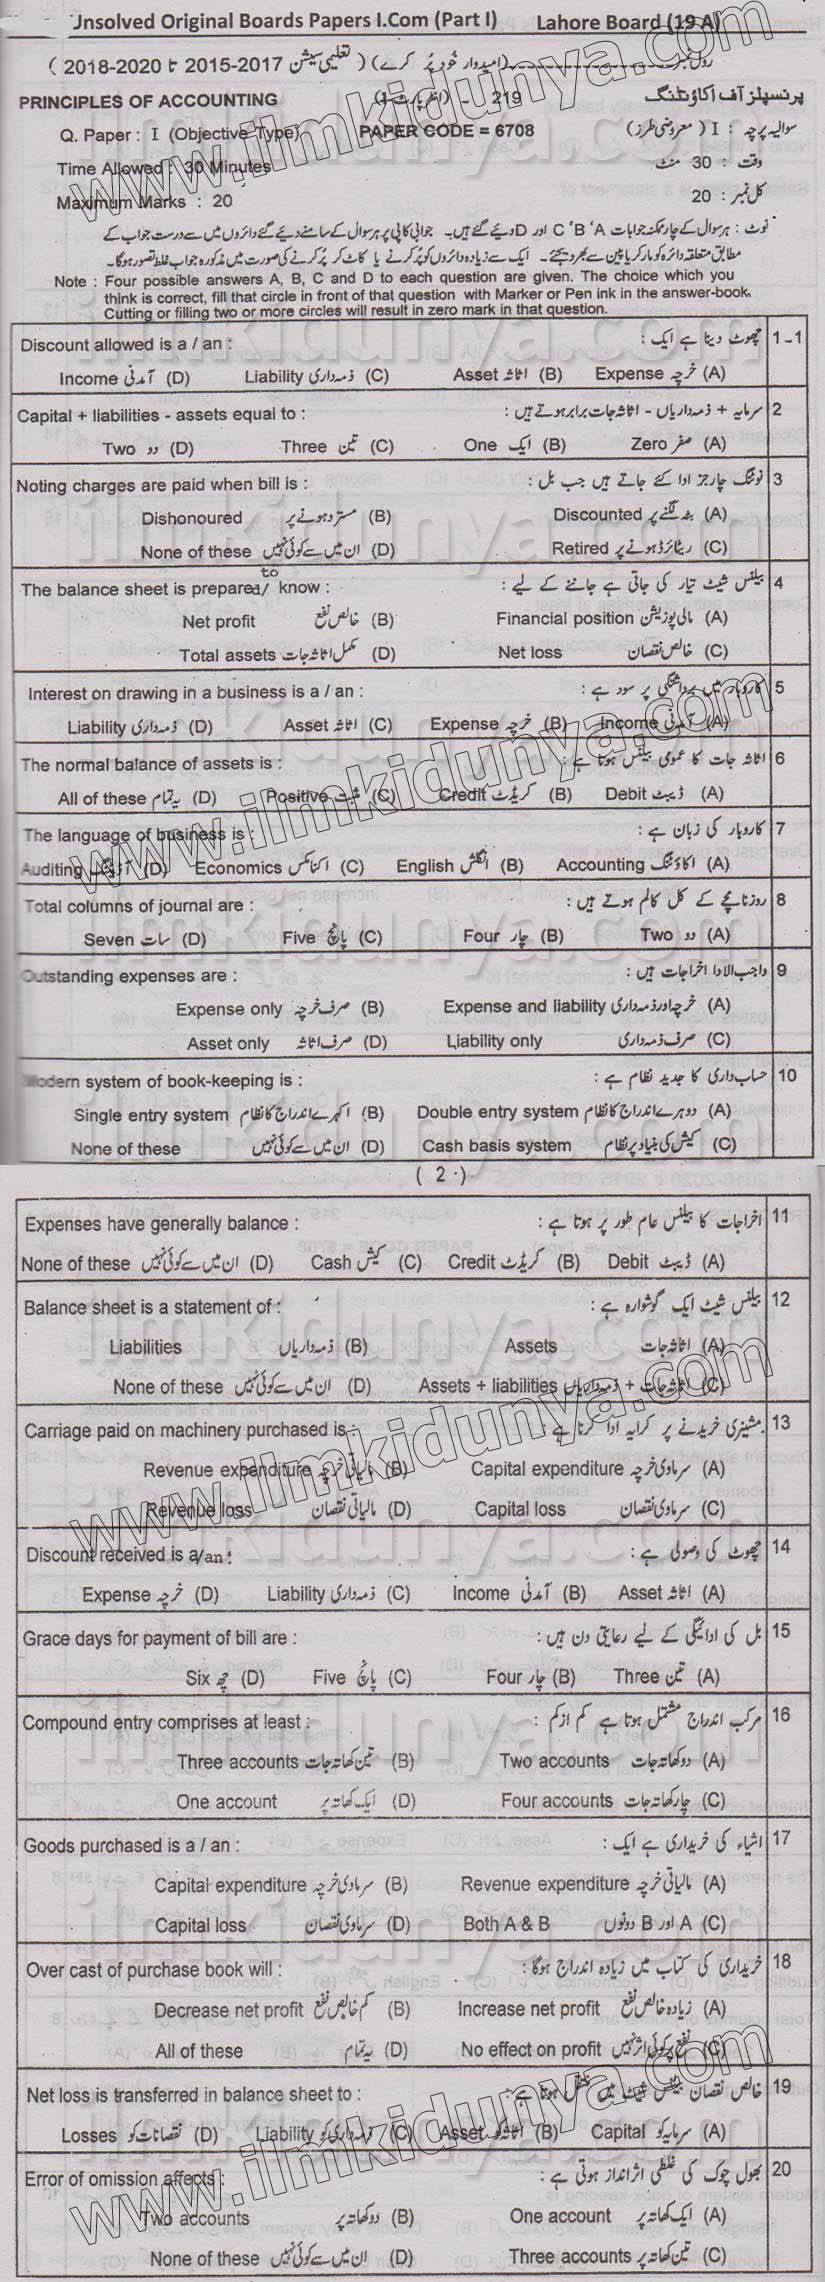 Unsolved Original Boards Papers I.Com (Part I) Lahore Board (19 A)
رول نمبر (امیدوار خود پُر کرے) (تعلیمی سیشن 2015-2017 تا 2018-2020)
PRINCIPLES OF ACCOUNTING 219 - (انٹر پارٹ - I) پرنسپلز آف اکاؤنٹنگ
Q. Paper : I (Objective Type) PAPER CODE = 6708 سوالیہ پرچہ : I (معروضی طرز)
Time Allowed : 30 Minutes وقت : 30 منٹ
Maximum Marks : 20 کل نمبر : 20
نوٹ : ہر سوال کے چار ممکنہ جوابات A، B، C اور D دیئے گئے ہیں۔ جوابی کاپی پر ہر سوال کے سامنے دیئے گئے دائروں میں سے درست جواب کے
مطابق متعلقہ دائرہ کو مارکر یا پین سے بھر دیجئے۔ ایک سے زیادہ دائروں کو پُر کرنے یا کاٹ کر پُر کرنے کی صورت میں مذکورہ جواب غلط تصور ہوگا۔
Note : Four possible answers A, B, C and D to each question are given. The choice which you
think is correct, fill that circle in front of that question with Marker or Pen ink in the answer-book.
Cutting or filling two or more circles will result in zero mark in that question.
Discount allowed is a / an : چھوٹ دینا ہے ایک : 1-1
Income آمدنی (D) Liability ذمہ داری (C) Asset اثاثہ (B) Expense خرچہ (A)
Capital + liabilities - assets equal to : سرمایہ + ذمہ داریاں - اثاثہ جات برابر ہوتے ہیں : 2
Two دو (D) Three تین (C) One ایک (B) Zero صفر (A)
Noting charges are paid when bill is : نوٹنگ چارجز ادا کئے جاتے ہیں جب بل : 3
Dishonoured مسترد ہونے پر (B) Discounted بٹہ لگنے پر (A)
None of these ان میں سے کوئی نہیں (D) Retired ریٹائرڈ ہونے پر (C)
The balance sheet is prepared/ to know : بیلنس شیٹ تیار کی جاتی ہے جاننے کے لیے : 4
Net profit خالص نفع (B) Financial position مالی پوزیشن (A)
Total assets مکمل اثاثہ جات (D) Net loss خالص نقصان (C)
Interest on drawing in a business is a / an : کاروبار میں برداشتگی پر سود ہے : 5
Liability ذمہ داری (D) Asset اثاثہ (C) Expense خرچہ (B) Income آمدنی (A)
The normal balance of assets is : اثاثہ جات کا عمومی بیلنس ہوتا ہے : 6
All of these یہ تمام (D) Positive مثبت (C) Credit کریڈٹ (B) Debit ڈیبٹ (A)
The language of business is : کاروبار کی زبان ہے : 7
Auditing آڈیٹنگ (D) Economics اکنامکس (C) English انگلش (B) Accounting اکاؤنٹنگ (A)
Total columns of journal are : روزنامچے کے کل کالم ہوتے ہیں : 8
Seven سات (D) Five پانچ (C) Four چار (B) Two دو (A)
Outstanding expenses are : واجب الادا اخراجات ہیں : 9
Expense only صرف خرچہ (B) Expense and liability خرچہ اور ذمہ داری (A)
Asset only صرف اثاثہ (D) Liability only صرف ذمہ داری (C)
Modern system of book-keeping is : حساب داری کا جدید نظام ہے : 10
Single entry system اکہرے اندراج کا نظام (B) Double entry system دوہرے اندراج کا نظام (A)
None of these ان میں سے کوئی نہیں (D) Cash basis system کیش کی بنیاد پر نظام (C)
( 2 )
Expenses have generally balance : اخراجات کا بیلنس عام طور پر ہوتا ہے : 11
None of these ان میں سے کوئی نہیں (D) Cash کیش (C) Credit کریڈٹ (B) Debit ڈیبٹ (A)
Balance sheet is a statement of : بیلنس شیٹ ایک گوشوارہ ہے : 12
Liabilities ذمہ داریاں (B) Assets اثاثہ جات (A)
None of these ان میں سے کوئی نہیں (D) Assets + liabilities اثاثہ جات + ذمہ داریاں (C)
Carriage paid on machinery purchased is : مشینری خریدنے پر کرایہ ادا کرنا ہے : 13
Revenue expenditure مالیاتی خرچہ (B) Capital expenditure سرماوی خرچہ (A)
Revenue loss مالیاتی نقصان (D) Capital loss سرماوی نقصان (C)
Discount received is a/an : چھوٹ کی وصولی ہے : 14
Expense خرچہ (D) Liability ذمہ داری (C) Income آمدنی (B) Asset اثاثہ (A)
Grace days for payment of bill are : بل کی ادائیگی کے لیے رعایتی دن ہیں : 15
Six چھ (D) Five پانچ (C) Four چار (B) Three تین (A)
Compound entry comprises at least : مرکب اندراج مشتمل ہوتا ہے کم از کم : 16
Three accounts تین کھاتہ جات (B) Two accounts دو کھاتہ جات (A)
One account ایک کھاتہ پر (D) Four accounts چار کھاتہ جات (C)
Goods purchased is a / an : اشیاء کی خریداری ہے ایک : 17
Capital expenditure سرماوی خرچہ (B) Revenue expenditure مالیاتی خرچہ (A)
Capital loss سرماوی نقصان (D) Both A & B A اور B دونوں (C)
Over cast of purchase book will : خریداری کی کتاب میں زیادہ اندراج ہوگا : 18
Decrease net profit کم خالص نفع (B) Increase net profit زیادہ خالص نفع (A)
All of these یہ تمام (D) No effect on profit نفع پر کوئی اثر نہیں (C)
Net loss is transferred in balance sheet to : خالص نقصان بیلنس شیٹ میں منتقل ہوتا ہے : 19
Losses نقصانات کو (D) Liability ذمہ داری کو (C) Asset اثاثہ کو (B) Capital سرمایہ کو (A)
Error of omission affects : بھول چوک کی غلطی اثر انداز ہوتی ہے : 20
Two accounts دو کھاتہ پر (B) One account ایک کھاتہ پر (A)
None of these ان میں سے کوئی نہیں (D) Three accounts تین کھاتہ پر (C)
www.ilmkidunya.com